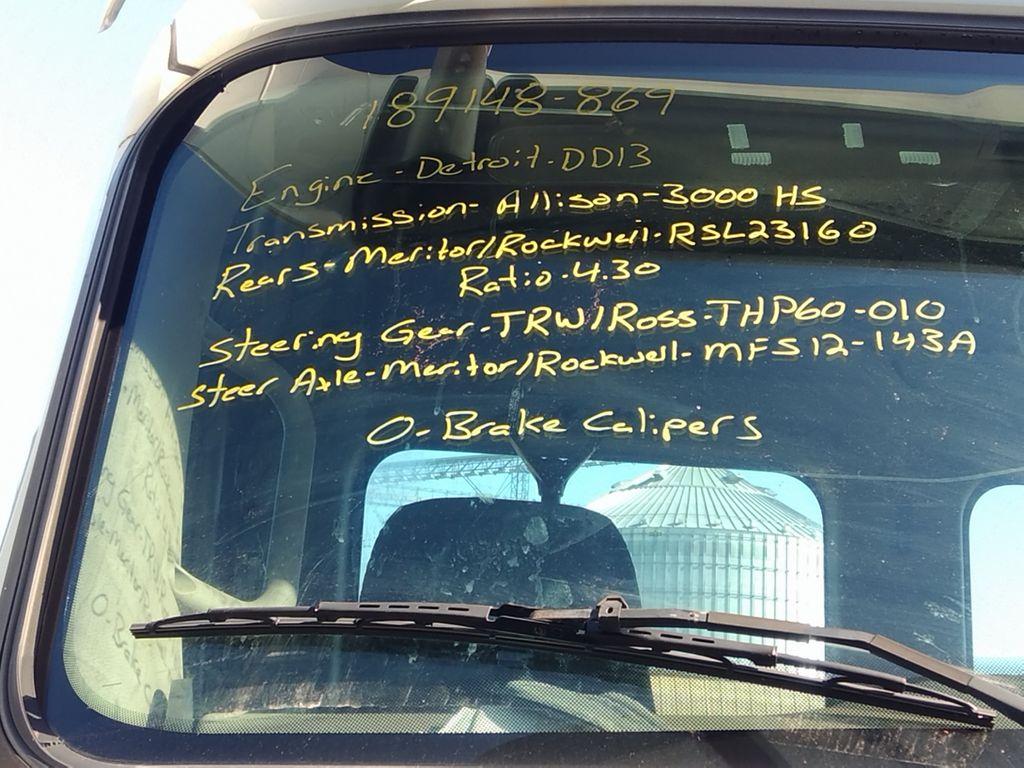 189148-869
Engine - Detroit - DD13
Transmission - Allison - 3000 HS
Rears - Meritor/Rockwell - RSL23160
Ratio - 4.30
Steering Gear - TRW/Ross - THP60-010
Steer Axle - Meritor/Rockwell - MFS12-143A
0 - Brake Calipers